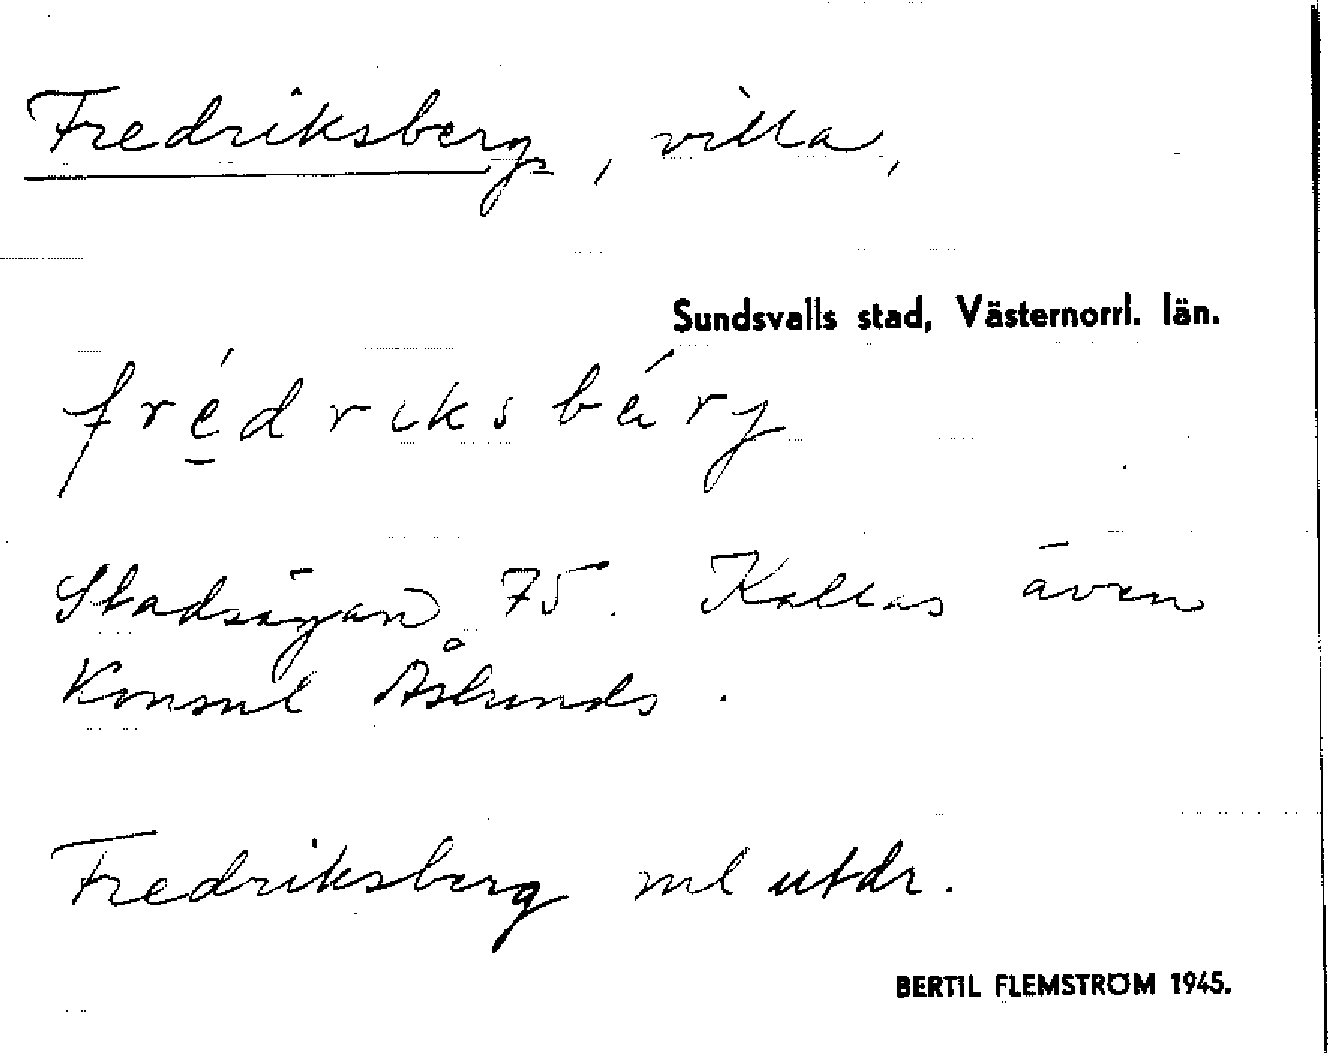 Fredriksberg, villa,
Sundsvalls stad, Västernorrl. län.
frédriksbärj
Stadsägan 75. Kallas även
Konsul Åslunds.
Fredriksberg ml utdr.
BERTIL FLEMSTRÖM 1945.